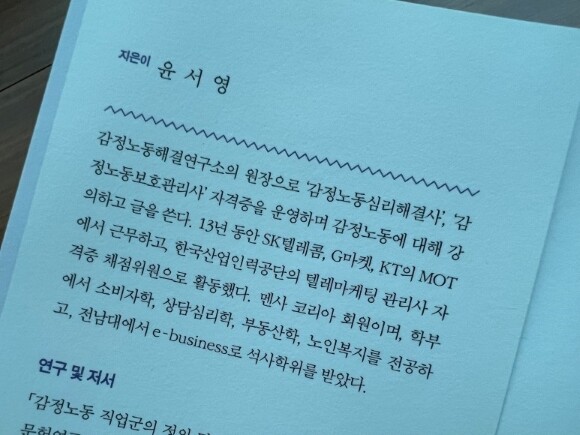 지은이 윤서영
감정노동해결연구소의 원장으로 '감정노동심리해결사', '감
정노동보호관리사' 자격증을 운영하며 감정노동에 대해 강
의하고 글을 쓴다. 13년 동안 SK텔레콤, G마켓, KT의 MOT
에서 근무하고, 한국산업인력공단의 텔레마케팅 관리사 자
격증 채점위원으로 활동했다. 멘사 코리아 회원이며, 학부
에서 소비자학, 상담심리학, 부동산학, 노인복지를 전공하
고, 전남대에서 e-business로 석사학위를 받았다.
연구 및 저서
「감정노동 직업군의 정의